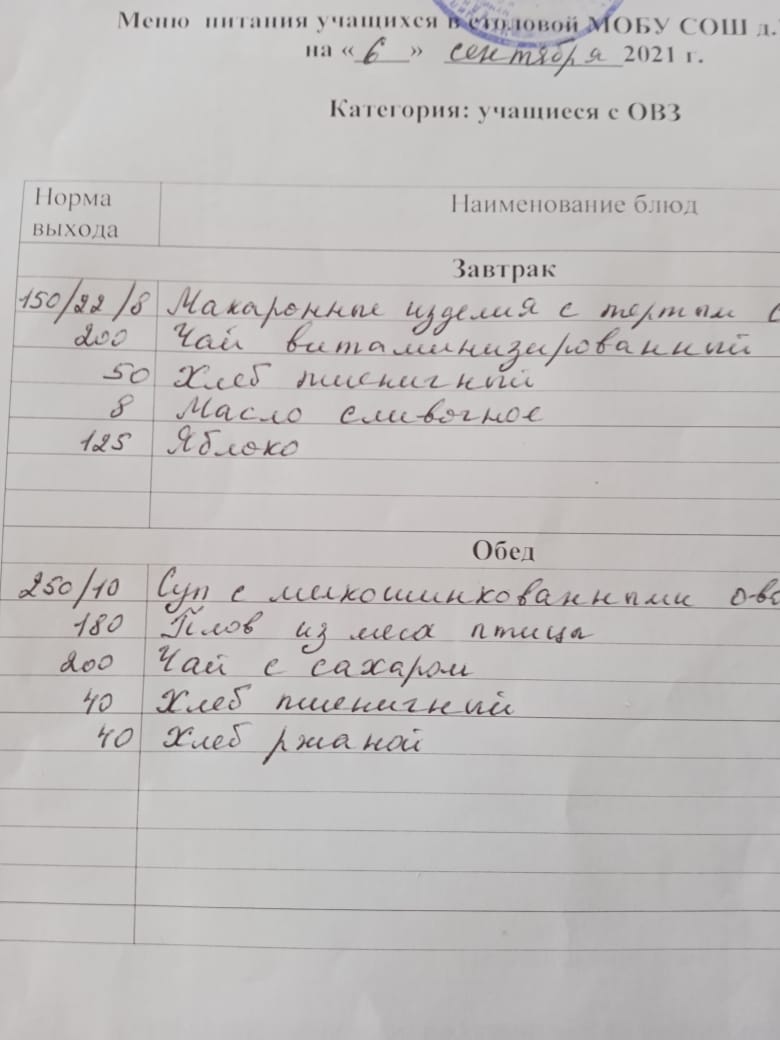 Меню питания учащихся в столовой МОБУ СОШ д.
на «6» сентября 2021 г.
Категория: учащиеся с ОВЗ
Норма выхода Наименование блюд
Завтрак
150/22/8 Макаронные изделия с тертым с
200 Чай витаминизированный
50 Хлеб пшеничный
8 Масло сливочное
125 Яблоко
Обед
250/10 Суп с микошинкованными ово
180 Плов из мяса птицы
200 Чай с сахаром
40 Хлеб пшеничный
40 Хлеб ржаной